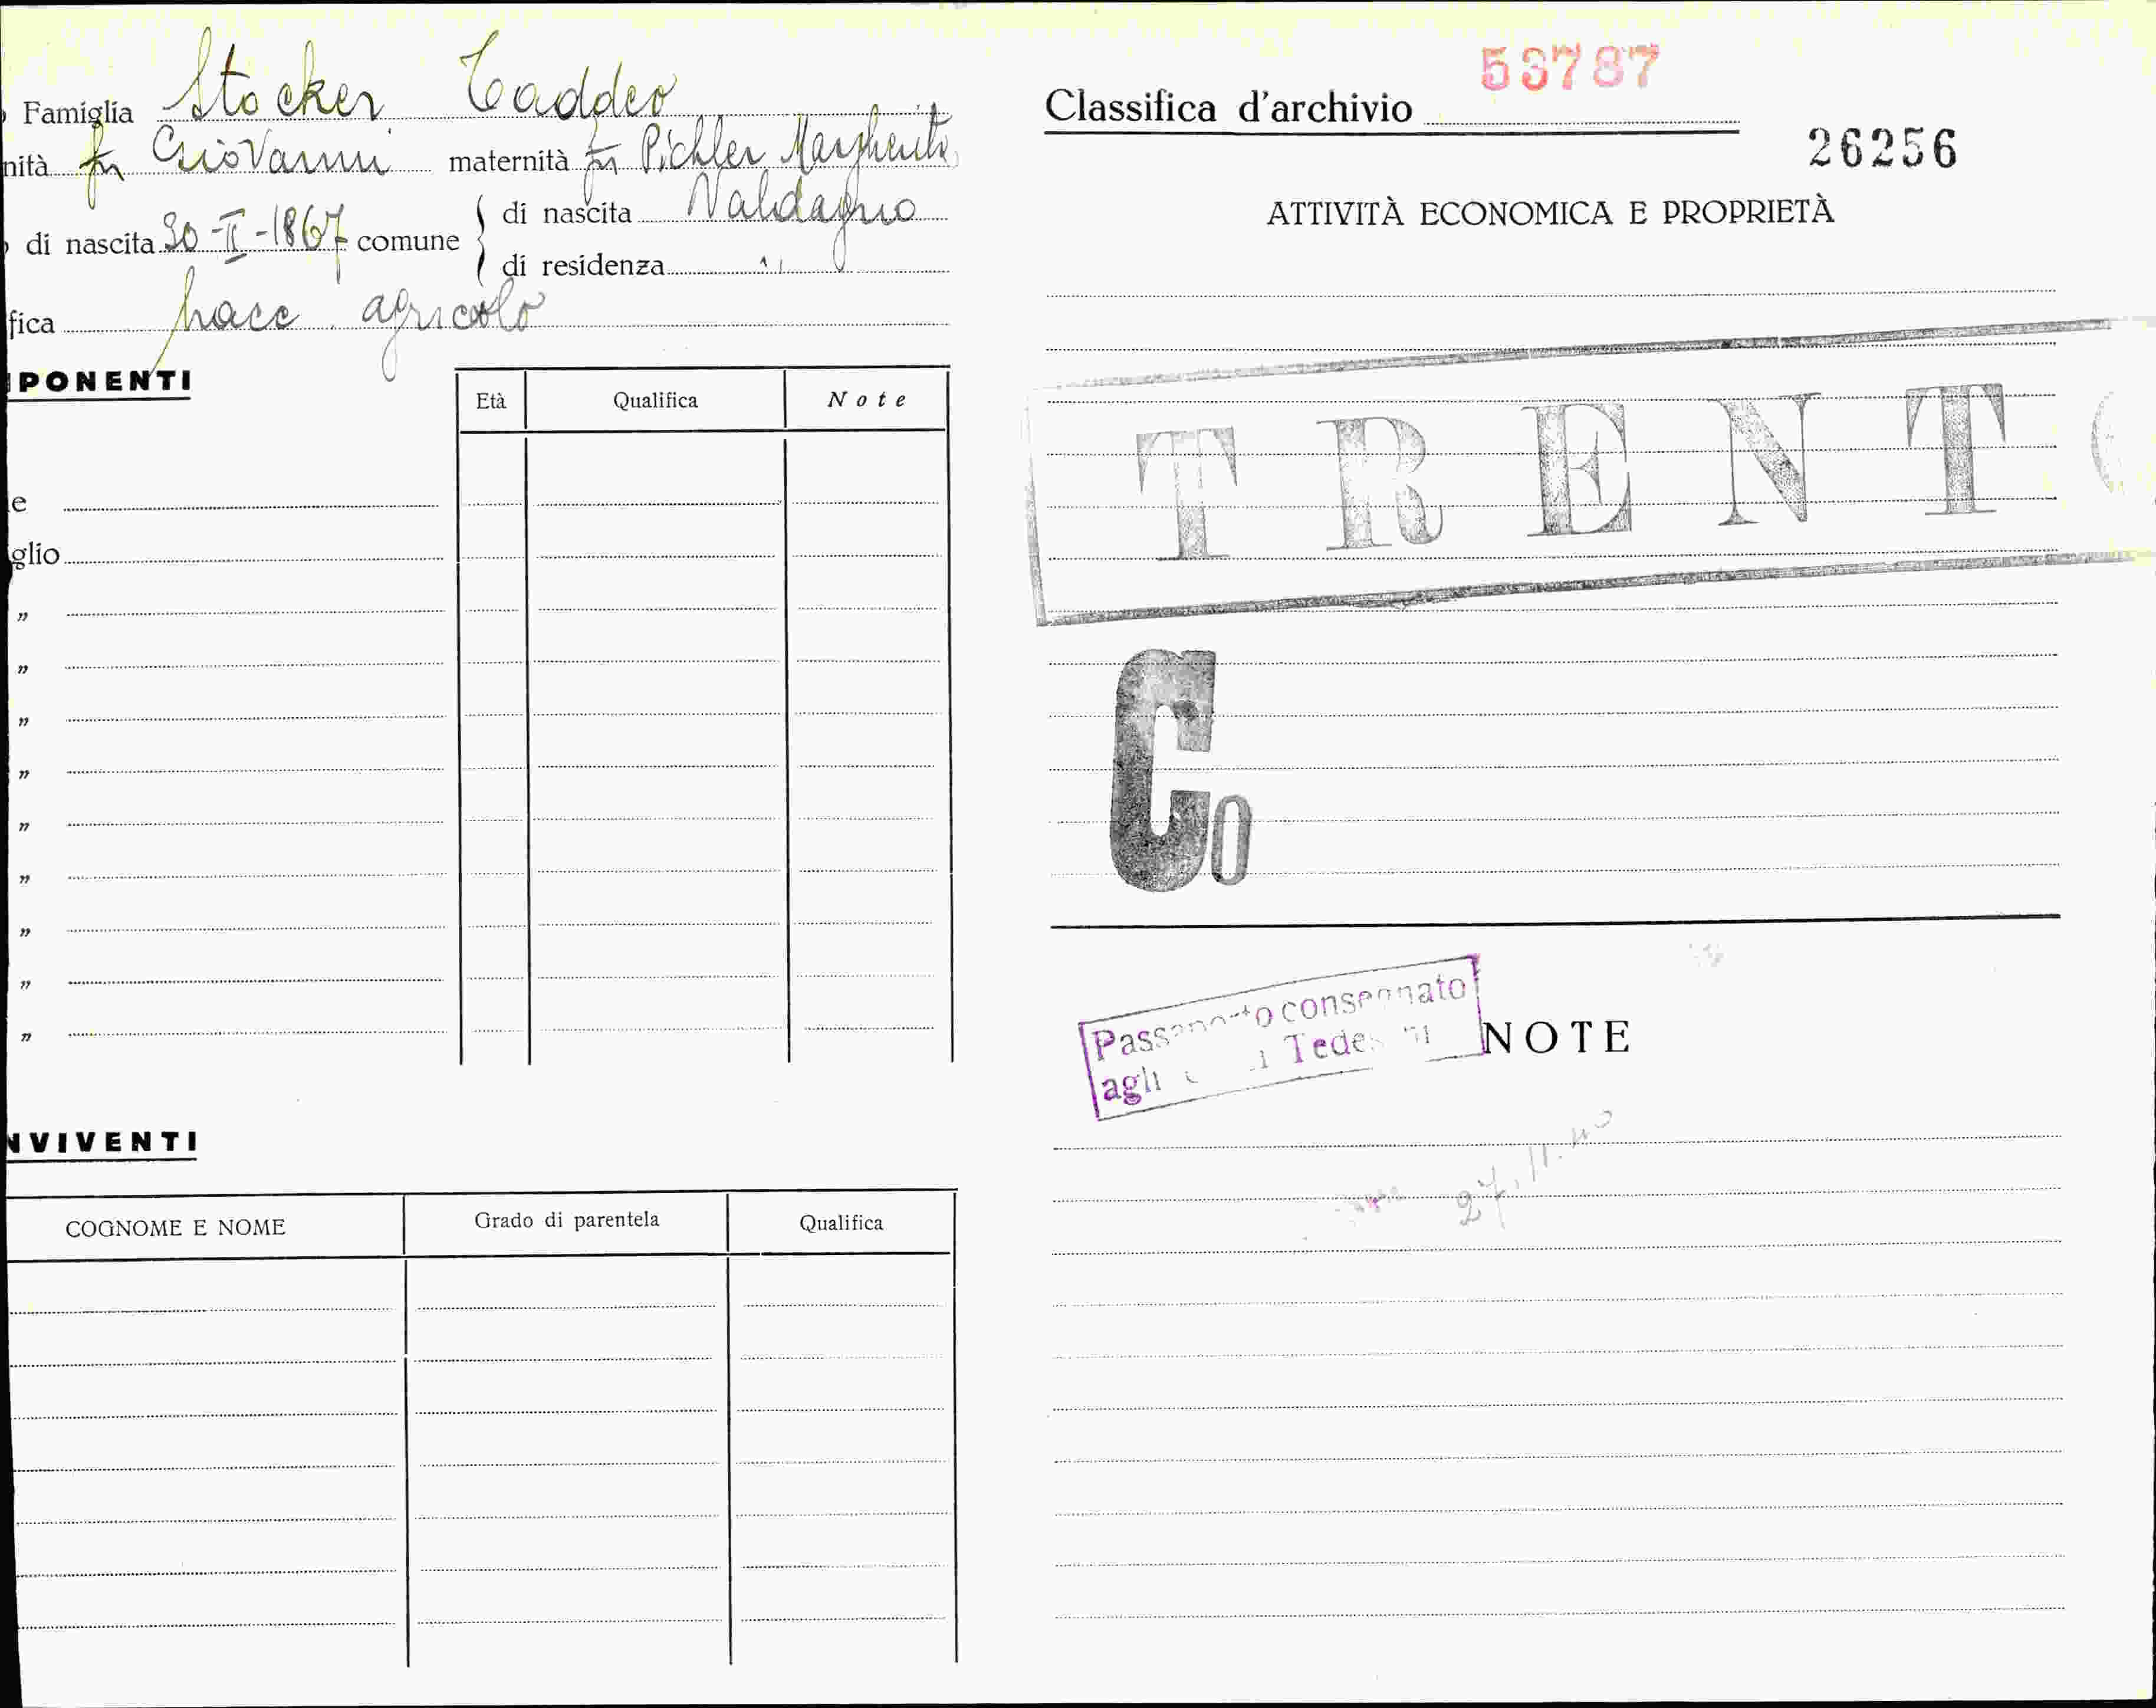 Famiglia Stocker Taddeo
nità fu Giovanni maternità fu Pichler Margherita
di nascita 30-II-1867 comune di nascita Valdagno
di residenza "
fica bracc. agricolo
PONENTI
Età Qualifica Note
e
glio
"
"
"
"
"
"
"
"
"
NVIVENTI
COGNOME E NOME Grado di parentela Qualifica
53787
Classifica d'archivio
26256
ATTIVITÀ ECONOMICA E PROPRIETÀ
TRENTO
Co
Passaporto consegnato
agli Tedeschi
NOTE
27.11.40